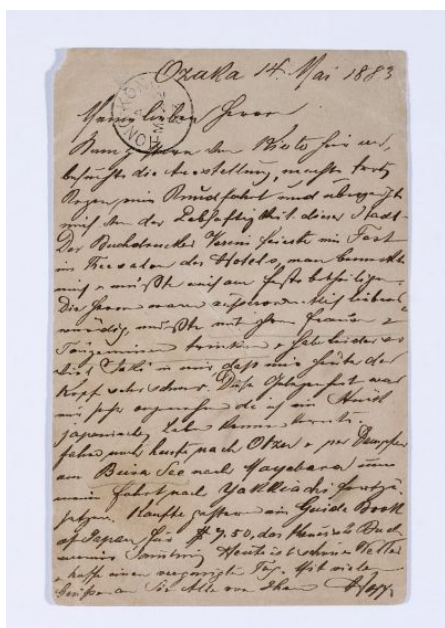 Ozaka 14. Mai 1883
Meine lieben Herrn
Kam gestern von Kioto hier an,
besuchte die Ausstellung, machte trotz
Regen, eine Rundfahrt und überzeugte
mich von der Lebhaftigkeit dieser Stadt.
Der Buchdrucker Verein feierte ein Fest
im Theesalon des Hotels, man bemerkte
mich & mußte mich am Feste betheiligen.
Die Herrn waren außerordentlich liebens
würdig, mußte mit ihren Frauen &
Tänzerinnen trinken & habe leider so
viel Saki in mir, daß mir heute der
Kopf sehr schwer. Diese Gelegenheit war
mir sehr angenehm da ich ein Stück
japanisches Leben kennen lernte.
fahre noch heute nach Otzu & per Dampfer
am Biwa See nach Mayebara um
meine Fahrt nach Yokkiachi fortzu
setzen. Kaufte gestern ein Guide Book
of Japan für $ 7.50, das theuerste Buch
meiner Samlung Heute ist schönes Wetter
& hoffe einen vergnügten Tag. Mit vielen
Grüßen an Sie Alle von Ihrem
HONG KONG
A